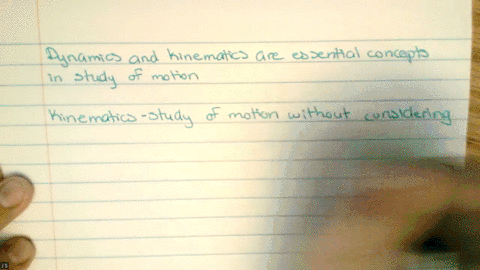 Dynamics and kinematics are essential concepts
in study of motion
Kinematics-study of motion without considering